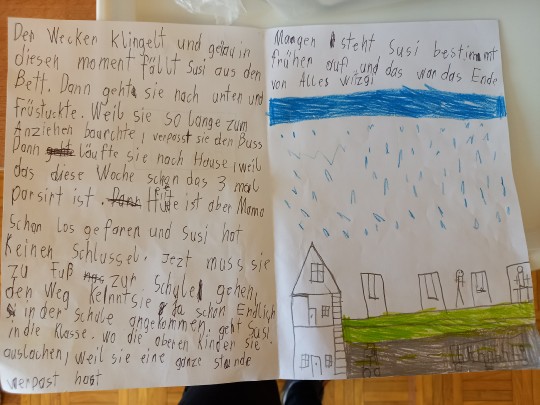 Der Wecker klingelt und genau in
diesen moment fällt Susi aus den
Bett. Dann geht sie nach unten und
früstuckte. Weil sie so lange zum
Anziehen baurchte, verpasst sie den Buss
Dann läufte sie nach House, weil
das diese Woche schon das 3 mal
parsirt ist. Heute ist aber Mama
schon los gefaren und Susi hat
Keinen Schlussel. Jezt muss sie
zu Fuß zur Schule gehen,
den Weg kennt sie ja schon Endlich
in der schule angekommen, geht Susi
in die Klasse. wo die oberen Kinder sie
auslachen, weil sie eine ganze stunde
verpast hast
Morgen steht Susi bestimmt
frühen auf und das war das Ende
von Alles witzgi